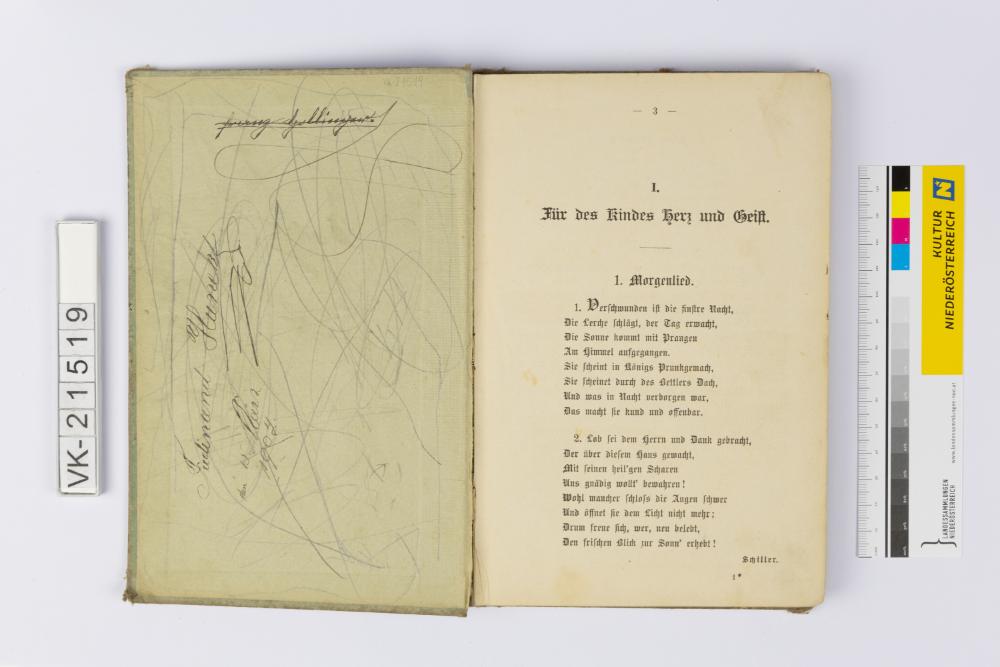 VK-21519
Franz Hollinger.
Ferdinand
März
— 3 —
I.
Für des Kindes Herz und Geist.
1. Morgenlied.
1. Verschwunden ist die finstre Nacht,
Die Lerche schlägt, der Tag erwacht,
Die Sonne kommt mit Prangen
Am Himmel aufgegangen.
Sie scheint in Königs Prunkgemach,
Sie scheinet durch des Bettlers Dach,
Und was in Nacht verborgen war,
Das macht sie kund und offenbar.
2. Lob sei dem Herrn und Dank gebracht,
Der über diesem Haus gewacht,
Mit seinen heil'gen Scharen
Uns gnädig wollt' bewahren!
Wohl mancher schloss die Augen schwer
Und öffnet sie dem Licht nicht mehr;
Drum freue sich, wer, neu belebt,
Den frischen Blick zur Sonn' erhebt!
Schiller.
1*
KULTUR
NIEDERÖSTERREICH
LANDESSAMMLUNGEN
NIEDERÖSTERREICH
www.landessammlungen-noe.at